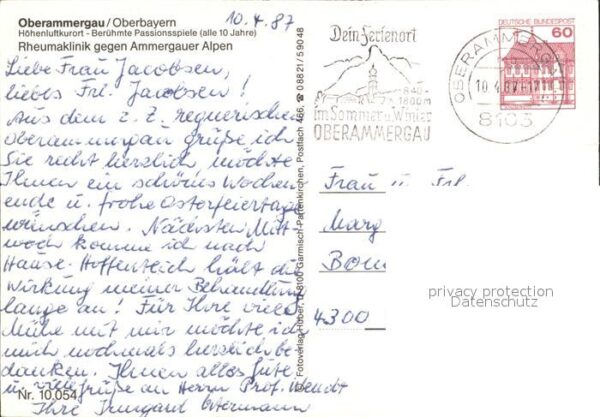 Oberammergau/Oberbayern
Höhenluftkurort - Berühmte Passionsspiele (alle 10 Jahre)
Rheumaklinik gegen Ammergauer Alpen
10.4.87
Liebe Frau Jacobsen,
liebes Frl. Jacobsen!
Aus dem z. Z. regnerischen
Oberammergau grüße ich
Sie recht herzlich, möchte
Ihnen ein schönes Wochen
ende u. frohe Osterfeiertage
wünschen. Nächsten Mitt-
woch komme ich nach
Hause. Hoffentlich hält die
Wirkung meiner Behandlung
lange an! Für Ihre viele
Mühe mit mir möchte ich
mich nochmals herzlich be-
danken. Ihnen alles Gute
u. viele Grüße an Herrn Prof. Wendt
Ihre Irmgard
Nr. 10.054
Fotoverlag Huber, D-8100 Garmisch-Partenkirchen, Postfach 466, ☎ 0 88 21 / 5 90 48
Dein Ferienort
840-
1800m
im Sommer u. Winter
OBERAMMERGAU
OBERAMMERGAU
10.4.87-17
8103
DEUTSCHE BUNDESPOST
60
Frau u. Frl.
Marg
4300
privacy protection
Datenschutz